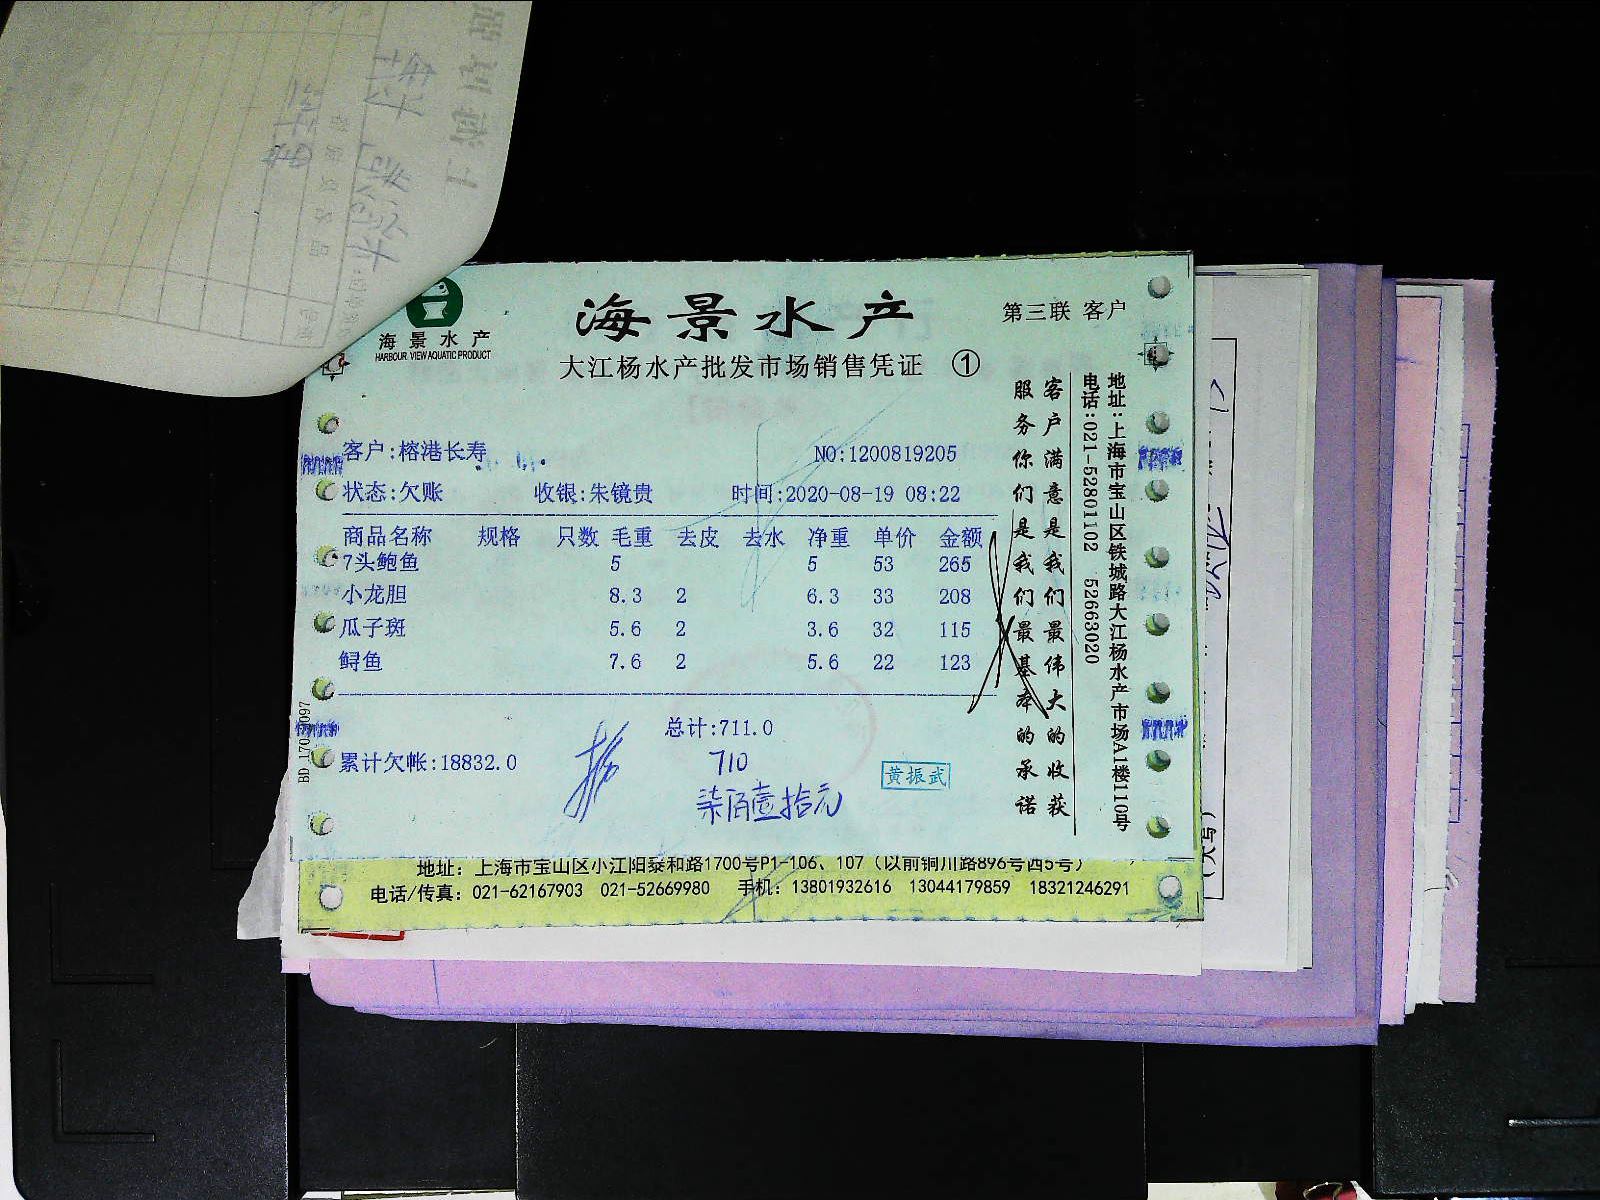 海景水产
HARBOUR VIEW AQUATIC PRODUCT
海景水产
第三联 客户
大江杨水产批发市场销售凭证 ①
客户:榕港长寿 NO:1200819205
状态:欠账 收银:朱镜贵 时间:2020-08-19 08:22
商品名称 规格 只数 毛重 去皮 去水 净重 单价 金额
7头鲍鱼 5 5 53 265
小龙胆 8.3 2 6.3 33 208
瓜子斑 5.6 2 3.6 32 115
鲟鱼 7.6 2 5.6 22 123
总计:711.0
累计欠帐:18832.0
710
柒佰壹拾元
黄振武
客户满意是我们最伟大的收获
服务你们是我们最基本的承诺
地址:上海市宝山区铁城路大江杨水产市场A1楼110号
电话:021-52801102 52663020
地址：上海市宝山区小江阳泰和路1700号P1-106、107（以前铜川路896号西5号）
电话/传真：021-62167903 021-52669980 手机：13801932616 13044179859 18321246291